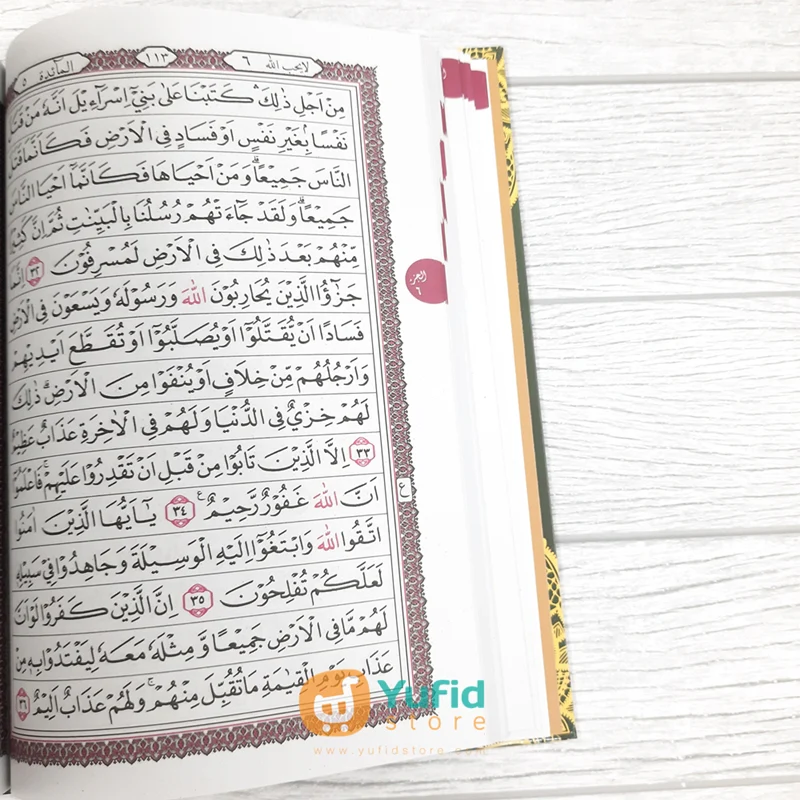 المآئدة ٥
١١٣
لايحب الله ٦
مِنْ اَجْلِ ذٰلِكَ ۛ كَتَبْنَا عَلٰى بَنِيْٓ اِسْرَاۤءِيْلَ اَنَّهٗ مَنْ
نَفْسًاۢ بِغَيْرِ نَفْسٍ اَوْ فَسَادٍ فِى الْاَرْضِ فَكَاَنَّمَا قَتَلَ
النَّاسَ جَمِيْعًاۗ وَمَنْ اَحْيَاهَا فَكَاَنَّمَآ اَحْيَا النَّاسَ
جَمِيْعًاۗ وَلَقَدْ جَاۤءَتْهُمْ رُسُلُنَا بِالْبَيِّنٰتِ ثُمَّ اِنَّ
مِّنْهُمْ بَعْدَ ذٰلِكَ فِى الْاَرْضِ لَمُسْرِفُوْنَ ٣٢ اِنَّمَا
جَزٰۤؤُا الَّذِيْنَ يُحَارِبُوْنَ اللّٰهَ وَرَسُوْلَهٗ وَيَسْعَوْنَ فِى الْاَرْضِ
فَسَادًا اَنْ يُّقَتَّلُوْٓا اَوْ يُصَلَّبُوْٓا اَوْ تُقَطَّعَ اَيْدِيْهِمْ
وَاَرْجُلُهُمْ مِّنْ خِلَافٍ اَوْ يُنْفَوْا مِنَ الْاَرْضِۗ ذٰلِكَ
لَهُمْ خِزْيٌ فِى الدُّنْيَا وَلَهُمْ فِى الْاٰخِرَةِ عَذَابٌ عَظِيْمٌ
٣٣ اِلَّا الَّذِيْنَ تَابُوْا مِنْ قَبْلِ اَنْ تَقْدِرُوْا عَلَيْهِمْۚ فَاعْلَمُوْٓا
اَنَّ اللّٰهَ غَفُوْرٌ رَّحِيْمٌ ࣖ ٣٤ يٰٓاَيُّهَا الَّذِيْنَ اٰمَنُوا
اتَّقُوا اللّٰهَ وَابْتَغُوْٓا اِلَيْهِ الْوَسِيْلَةَ وَجَاهِدُوْا فِيْ سَبِيْلِهٖ
لَعَلَّكُمْ تُفْلِحُوْنَ ٣٥ اِنَّ الَّذِيْنَ كَفَرُوْا لَوْ اَنَّ
لَهُمْ مَّا فِى الْاَرْضِ جَمِيْعًا وَّمِثْلَهٗ مَعَهٗ لِيَفْتَدُوْا بِهٖ مِنْ
عَذَابِ يَوْمِ الْقِيٰمَةِ مَا تُقُبِّلَ مِنْهُمْۚ وَلَهُمْ عَذَابٌ اَلِيْمٌ ٣٦
ع
الجزء
٦
Yufid
store
www.yufidstore.com